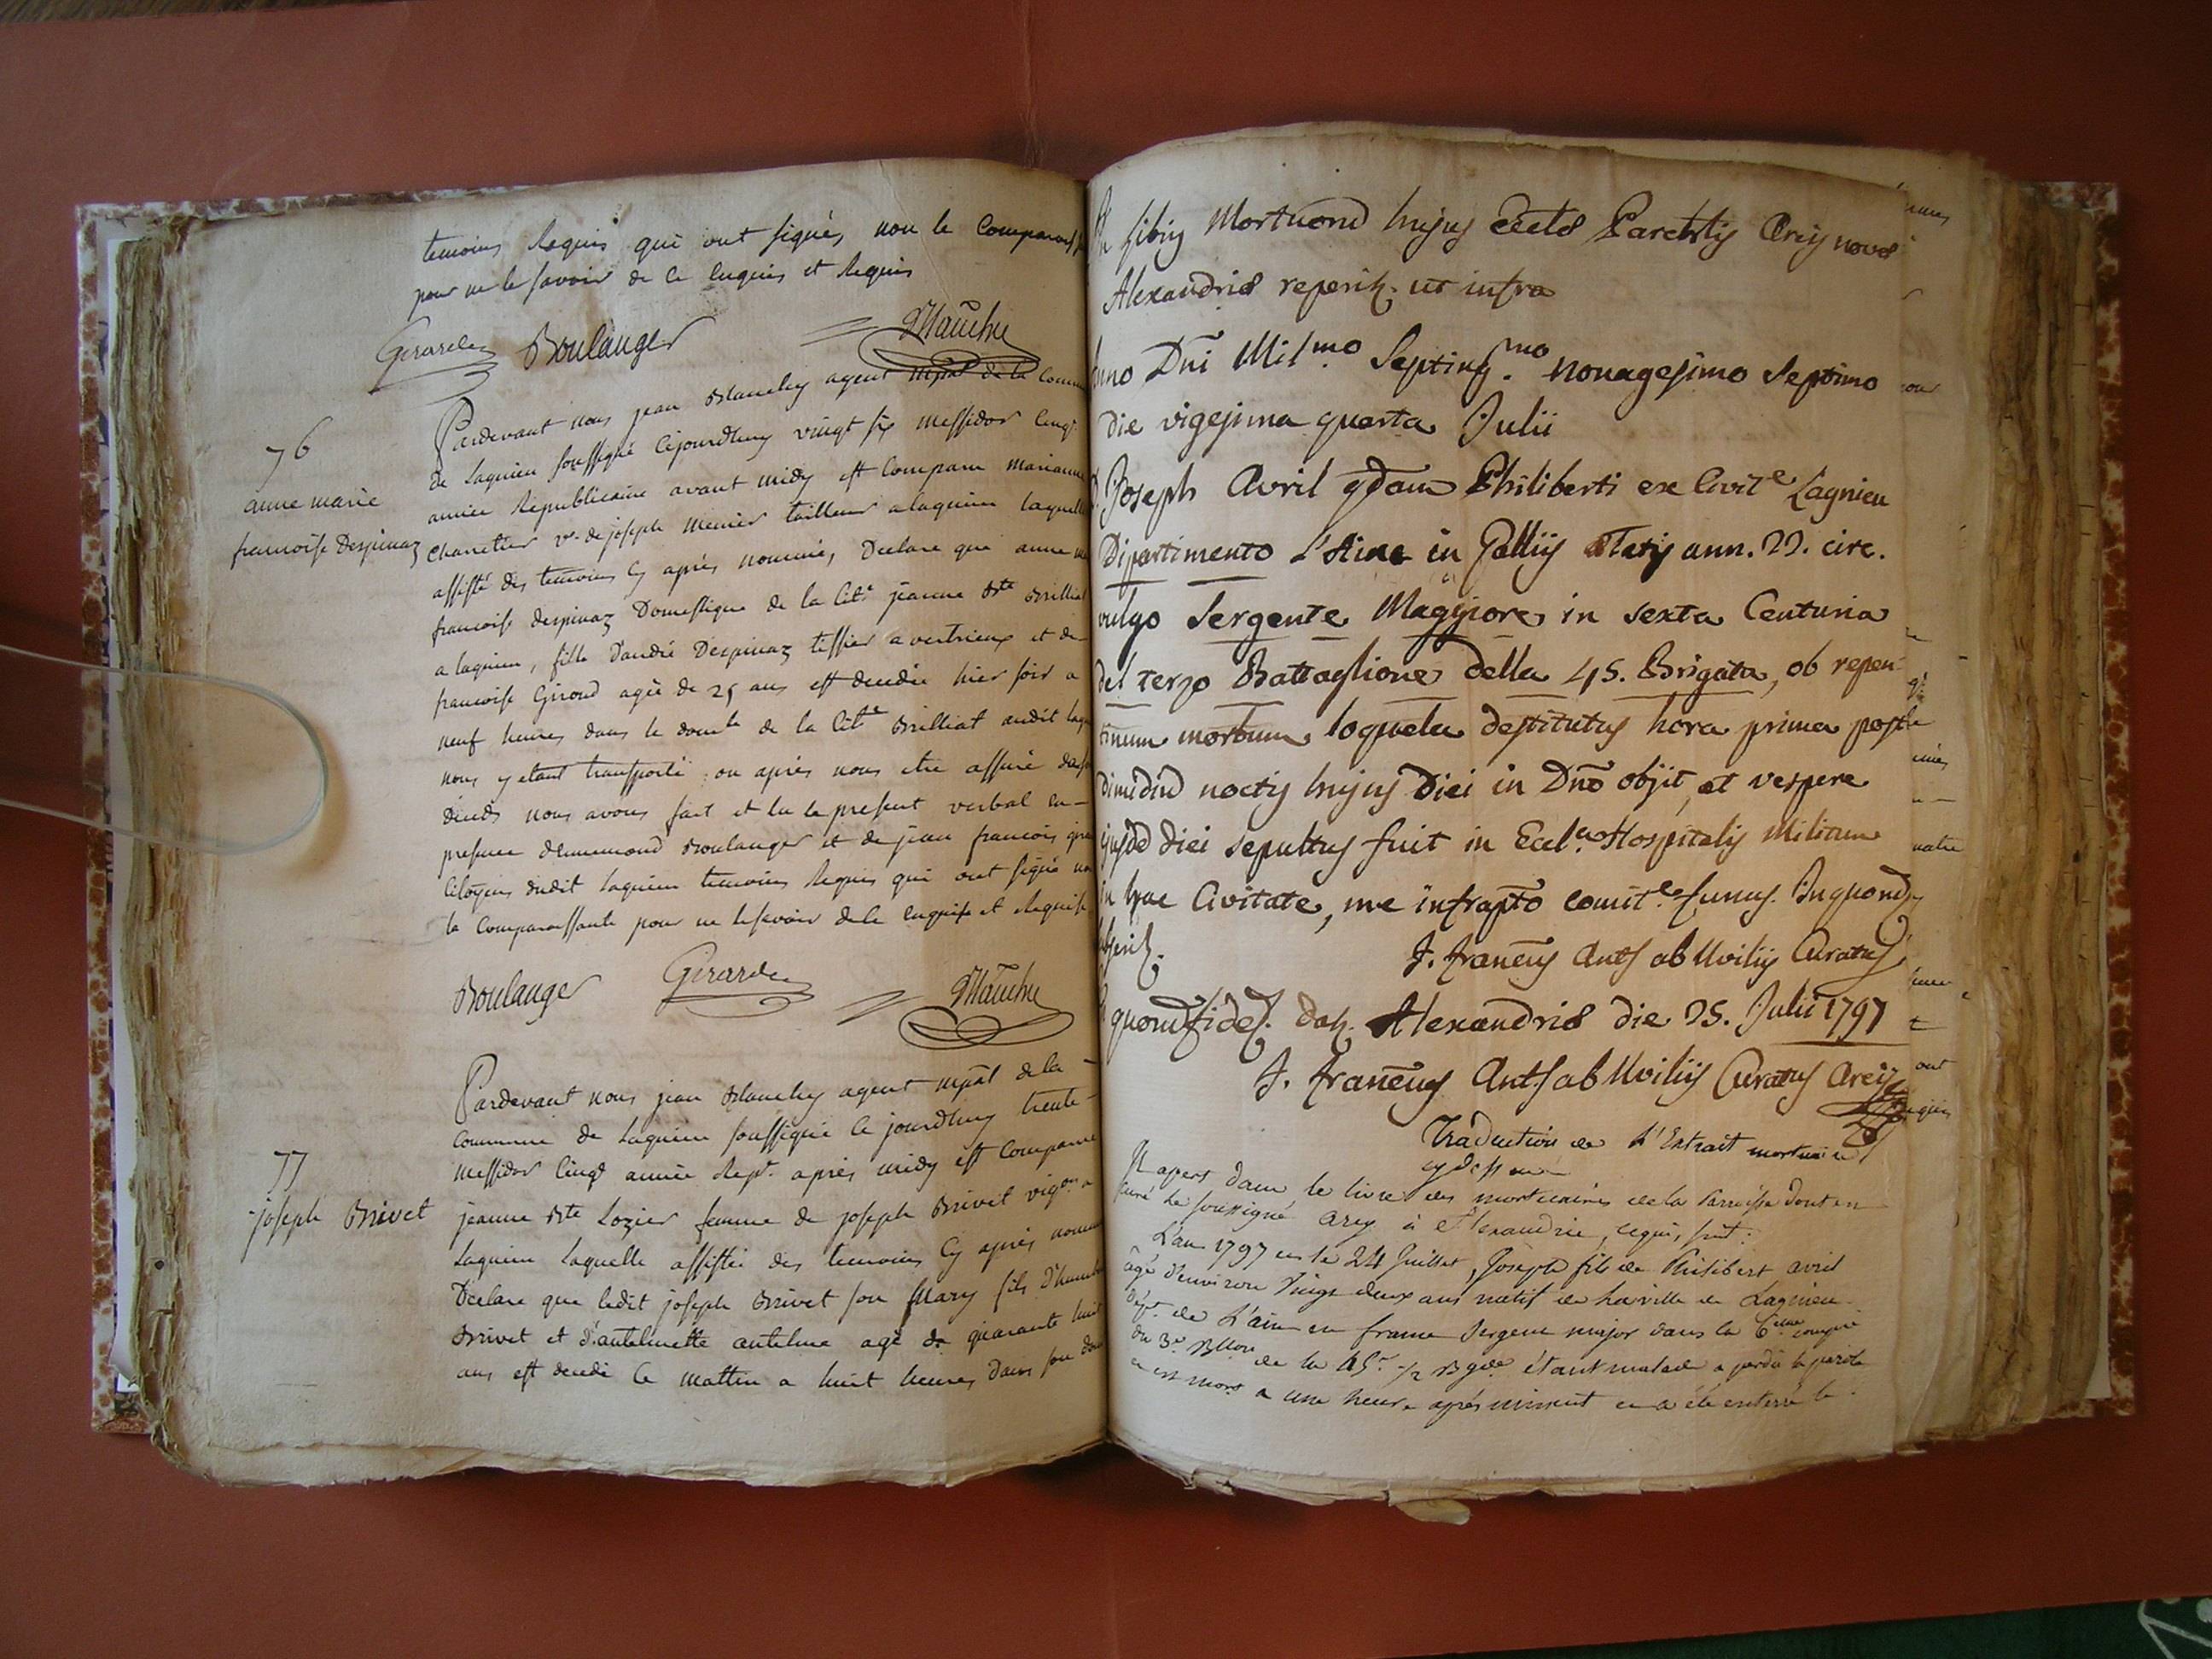 temoins Requis qui ont signés non le
pour ne le savoir de ce enquis et Requis
Boulanger
Blanchy
76
anne marie
francoise Despinaz
Pardevant nous jean Blanchy agent mpal de la
de Lagnieu soussigné Cejourdhuy vingt six Messidor Cinqe
année Républicaine avant midy est Comparu marianne
ve de joseph Menier tailleur a lagnieu
assisté des temoins Cy après nommés, Declare que anne
francoise despinaz Domestique de la Cite jeanne Bte
a lagnieu, fille D'andré Despinaz tissier a vertrieux et de
francoise Giroud agée de 25 ans est decedée hier soir a
neuf heures dans le domle de la Cite Brilliat audit
nous y etant transporté ou après nous etre assuré
decès nous avons fait et lu le present verbal en
presence Boulanger et de jean francois
Citoyens dudit Lagnieu temoins Requis qui ont signé
la Comparaissante pour ne le savoir de ce enquise et Requise
Boulanger
Blanchy
77
joseph Brivet
Pardevant nous jean Blanchy agent mpal de la
Commune de Lagnieu soussigné Ce jourdhuy trente
Messidor Cinqe année Repe après midy est Comparue
jeanne Bte Lozier femme de joseph Brivet vigon a
Lagnieu Laquelle assistée des temoins Cy après
Declare que ledit joseph Brivet son Mary fils
Brivet et d'antelmette antelme agé de quarante huit
ans est decedé Ce mattin a huit heures Dans son
Mortuord hujus Parchlis Areis novæ
Alexandriæ reperitz. ut infra
Dñi Milmo. Septingmo. Nonagesimo Septimo
die vigesima quarta Julii
Joseph Avril qdam Philiberti ex Civite Lagnieu
Dipartimento L'Aine in Galliis ætatis ann. 22. circ.
vulgo Sergente Maggiore in sexta Centuria
del terzo Battaglione della 45. Brigata, ob repen-
tinum morbum loquela destitutus hora prima post
dimidiũ noctis hujus Diei in Dño objit, et vespere
ejusdẽ diei sepultus fuit in Eccl.a Hospitalis Militum
in hac Civitate, me infrapto comite funus. In quorũ
J. Curatus
quorũ fidẽ. datz. Alexandriæ die 25. Julii 1797
J. Curatus Areis
Traduction de L'Extrait mortuaire
cy dessus
Il apert dans le livre des mortuaires de la Parroisse dont en
curé Le soussigné arey à Alexandrie, cequi suit:
L'an 1797 et le 24 Juillet, Joseph fils de Philibert avril
âgé d'environ Vingt deux ans natif de la ville de Lagnieu
dépt. de L'ain en france Sergent major dans la 6eme compie
du 3e Bllon de la 45e 1/2 Bgde étant malade a perdu la parole
et est mort a une heure après minuit et a été enterré le